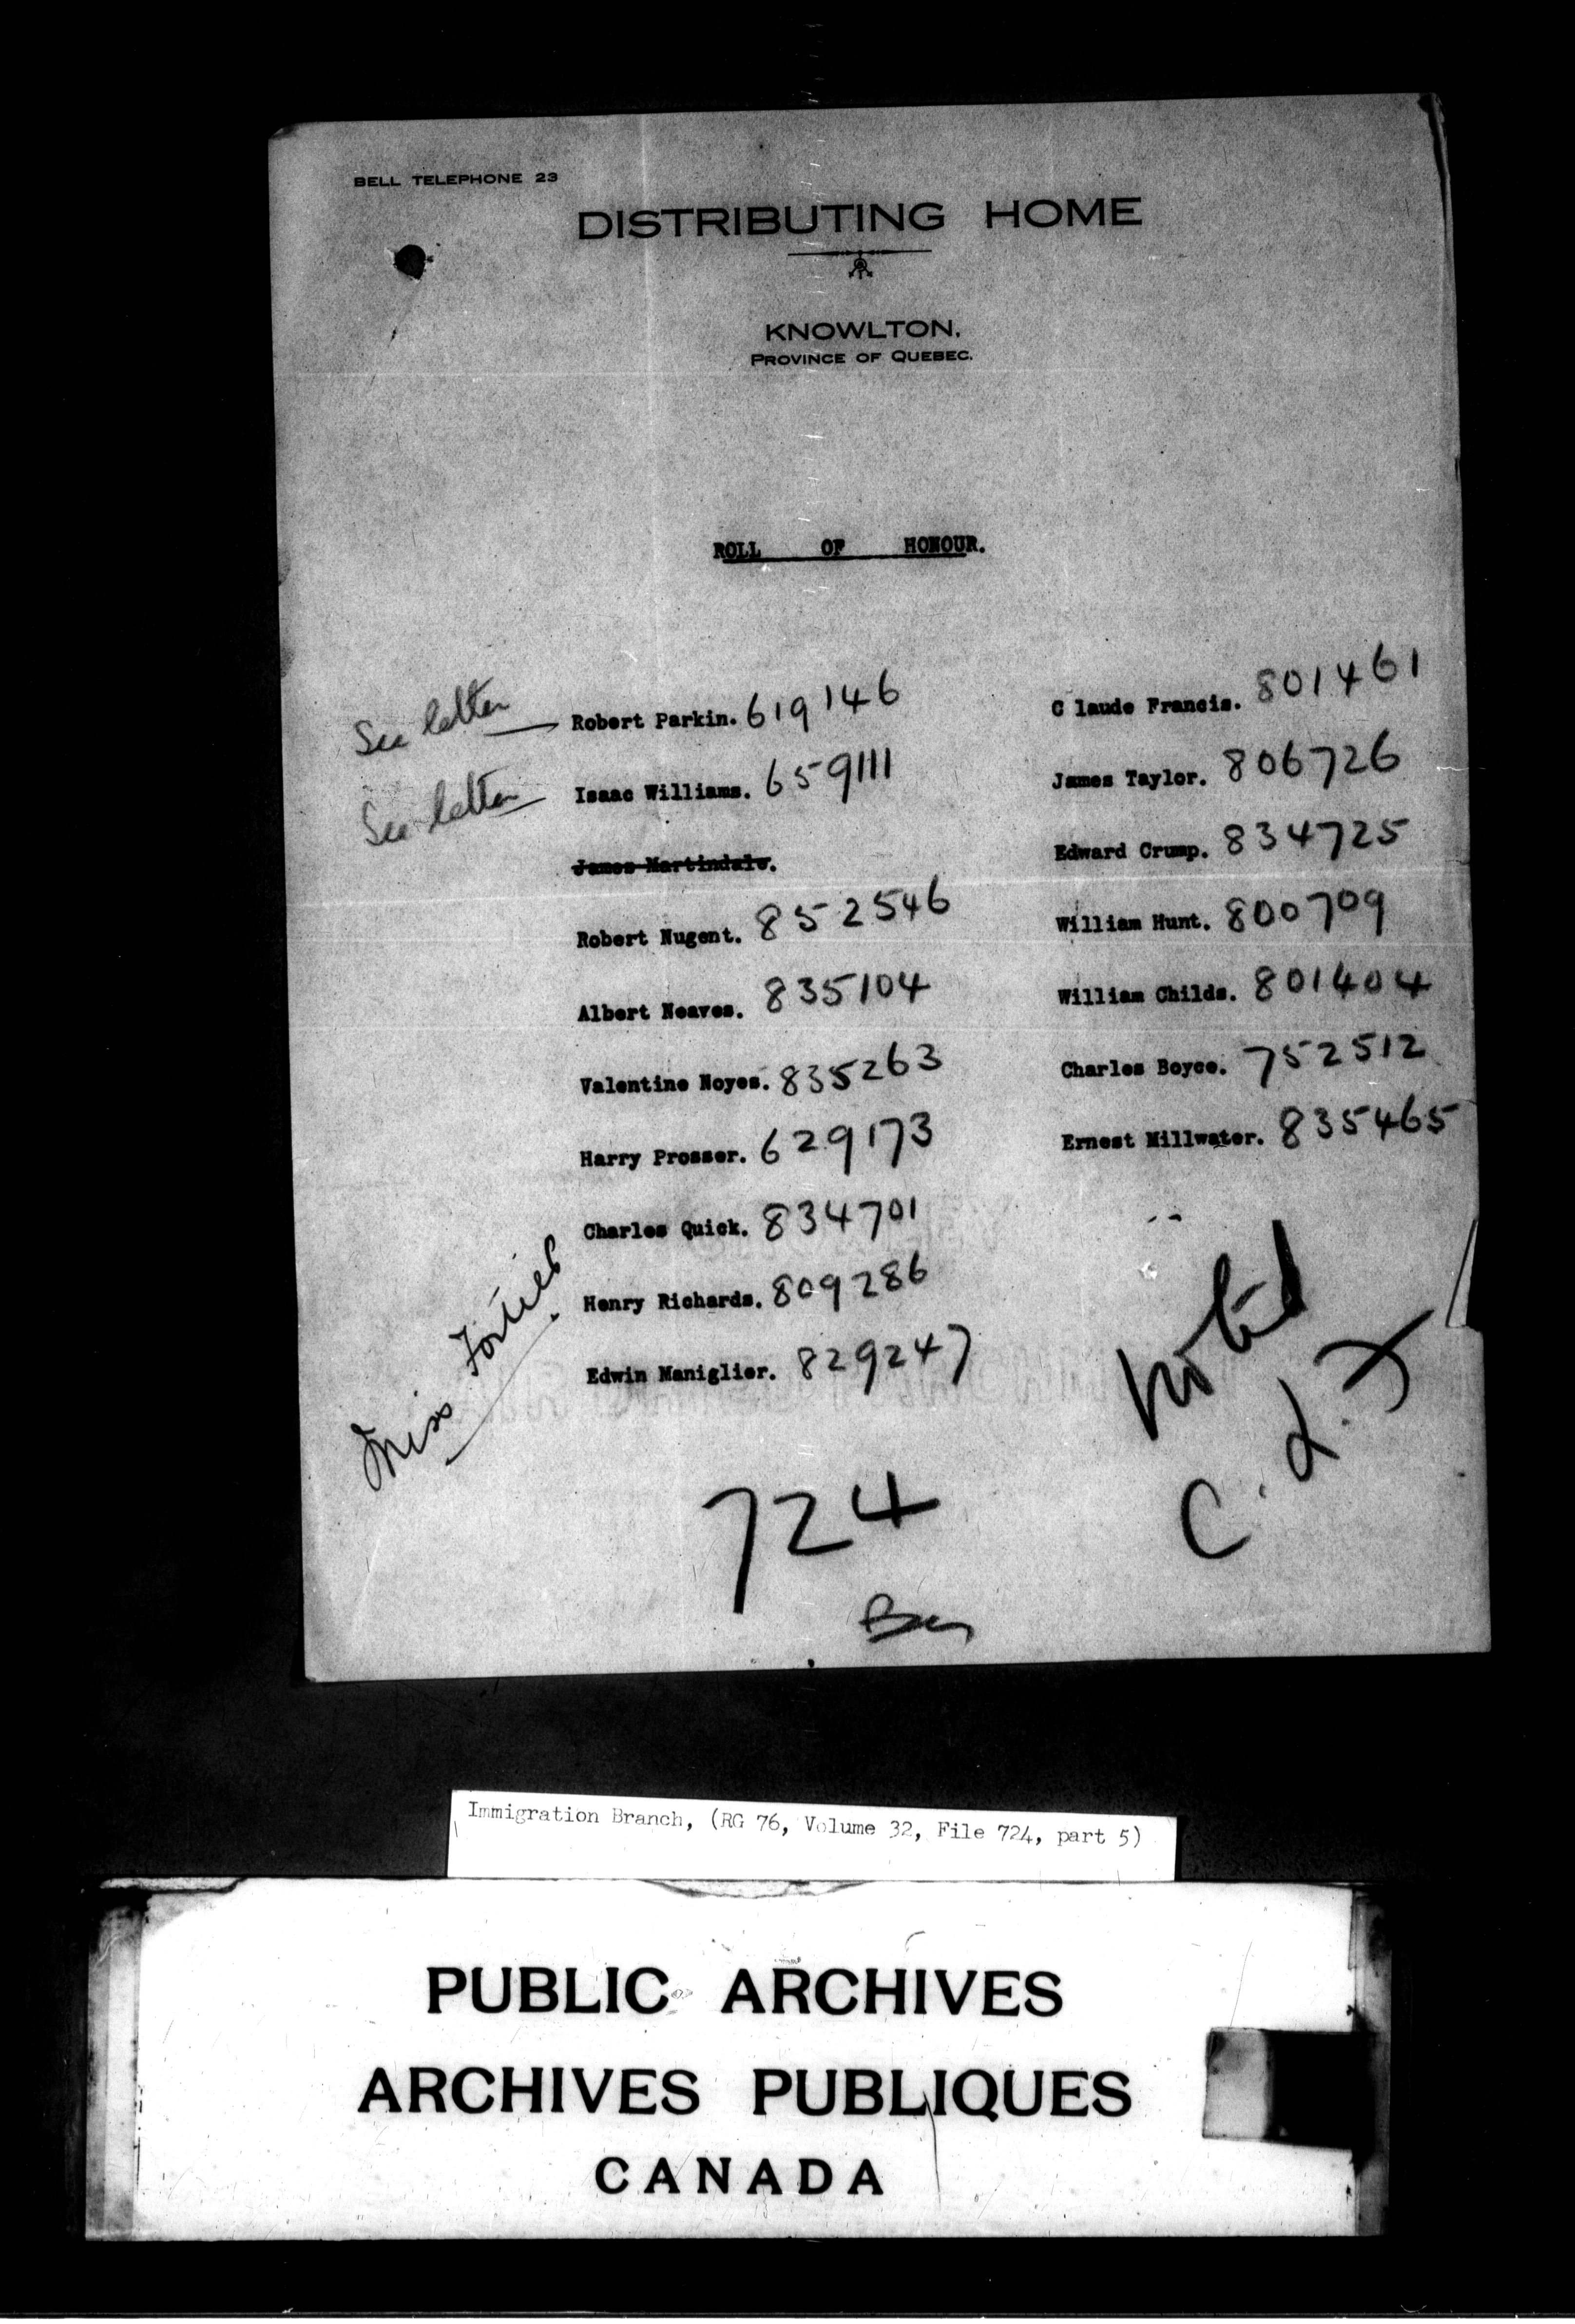 BELL TELEPHONE 23
DISTRIBUTING HOME
KNOWLTON,
PROVINCE OF QUEBEC.
ROLL OF HONOUR.
See letter Robert Parkin. 619146
See letter Isaac Williams. 659111
James Martindale.
Robert Nugent. 852546
Albert Neaves. 835104
Valentine Noyes. 835263
Harry Prosser. 629173
Charles Quick. 834701
Henry Richards. 809286
Edwin Maniglier. 829247
C laude Francis. 801461
James Taylor. 806726
Edward Crump. 834725
William Hunt. 800709
William Childs. 801404
Charles Boyce. 752512
Ernest Millwater. 835465
Miss Fortier
Noted
724
Immigration Branch, (RG 76, Volume 32, File 724, part 5)
PUBLIC ARCHIVES
ARCHIVES PUBLIQUES
CANADA